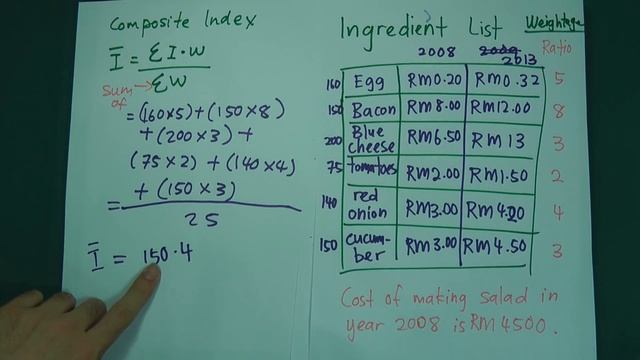 Composite Index
Ī = ΣI·W
ΣW
Sum of →
= (160×5)+(150×8)
+(200×3)+
(75×2)+(140×4)
+(150×3)
=
25
Ī = 150.4
Ingredient List
Weightage
2008 2009 2013 Ratio
160 Egg RM0.20 RM0.32 5
150 Bacon RM8.00 RM12.00 8
200 Blue cheese RM6.50 RM13 3
75 tomatoes RM2.00 RM1.50 2
140 red onion RM3.00 RM4.20 4
150 cucum-ber RM3.00 RM4.50 3
Cost of making salad in
year 2008 is RM4500.